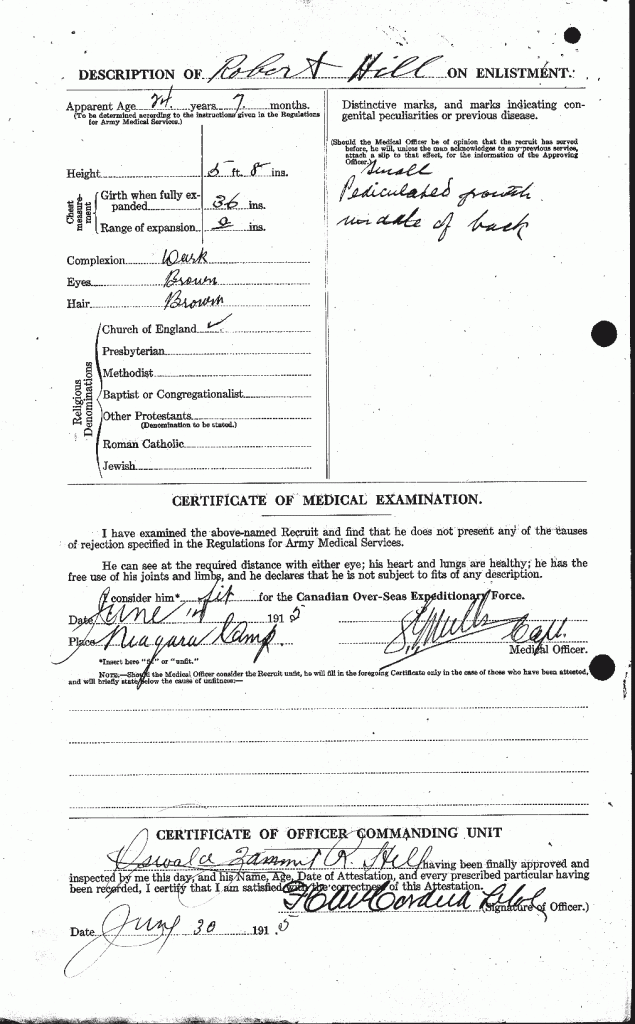 DESCRIPTION OF Robert Hill ON ENLISTMENT.
Apparent Age 24 years 7 months.
(To be determined according to the instructions given in the Regulations
for Army Medical Services.)
Height 5 ft. 8 ins.
Chest measurement
Girth when fully expanded 36 ins.
Range of expansion ins.
Complexion Dark
Eyes Brown
Hair Brown
Religious Denominations
Church of England ✓
Presbyterian
Methodist
Baptist or Congregationalist
Other Protestants
(Denomination to be stated.)
Roman Catholic
Jewish
Distinctive marks, and marks indicating con-
genital peculiarities or previous disease.
(Should the Medical Officer be of opinion that the recruit has served
before, he will, unless the man acknowledges to any previous service,
attach a slip to that effect, for the information of the Approving
Officer.)
Small
Pediculated growth
middle of back
CERTIFICATE OF MEDICAL EXAMINATION.
I have examined the above-named Recruit and find that he does not present any of the causes
of rejection specified in the Regulations for Army Medical Services.
He can see at the required distance with either eye; his heart and lungs are healthy; he has the
free use of his joints and limbs, and he declares that he is not subject to fits of any description.
I consider him* fit for the Canadian Over-Seas Expeditionary Force.
Date June 1915
Place Niagara Camp
Capt.
Medical Officer.
*Insert here "fit" or "unfit."
NOTE.—Should the Medical Officer consider the Recruit unfit, he will fill in the foregoing Certificate only in the case of those who have been attested,
and will briefly state below the cause of unfitness:—
CERTIFICATE OF OFFICER COMMANDING UNIT
Oswald R. Hill having been finally approved and
inspected by me this day, and his Name, Age, Date of Attestation, and every prescribed particular having
been recorded, I certify that I am satisfied with the correctness of this Attestation.
(Signature of Officer.)
Date June 30 1915